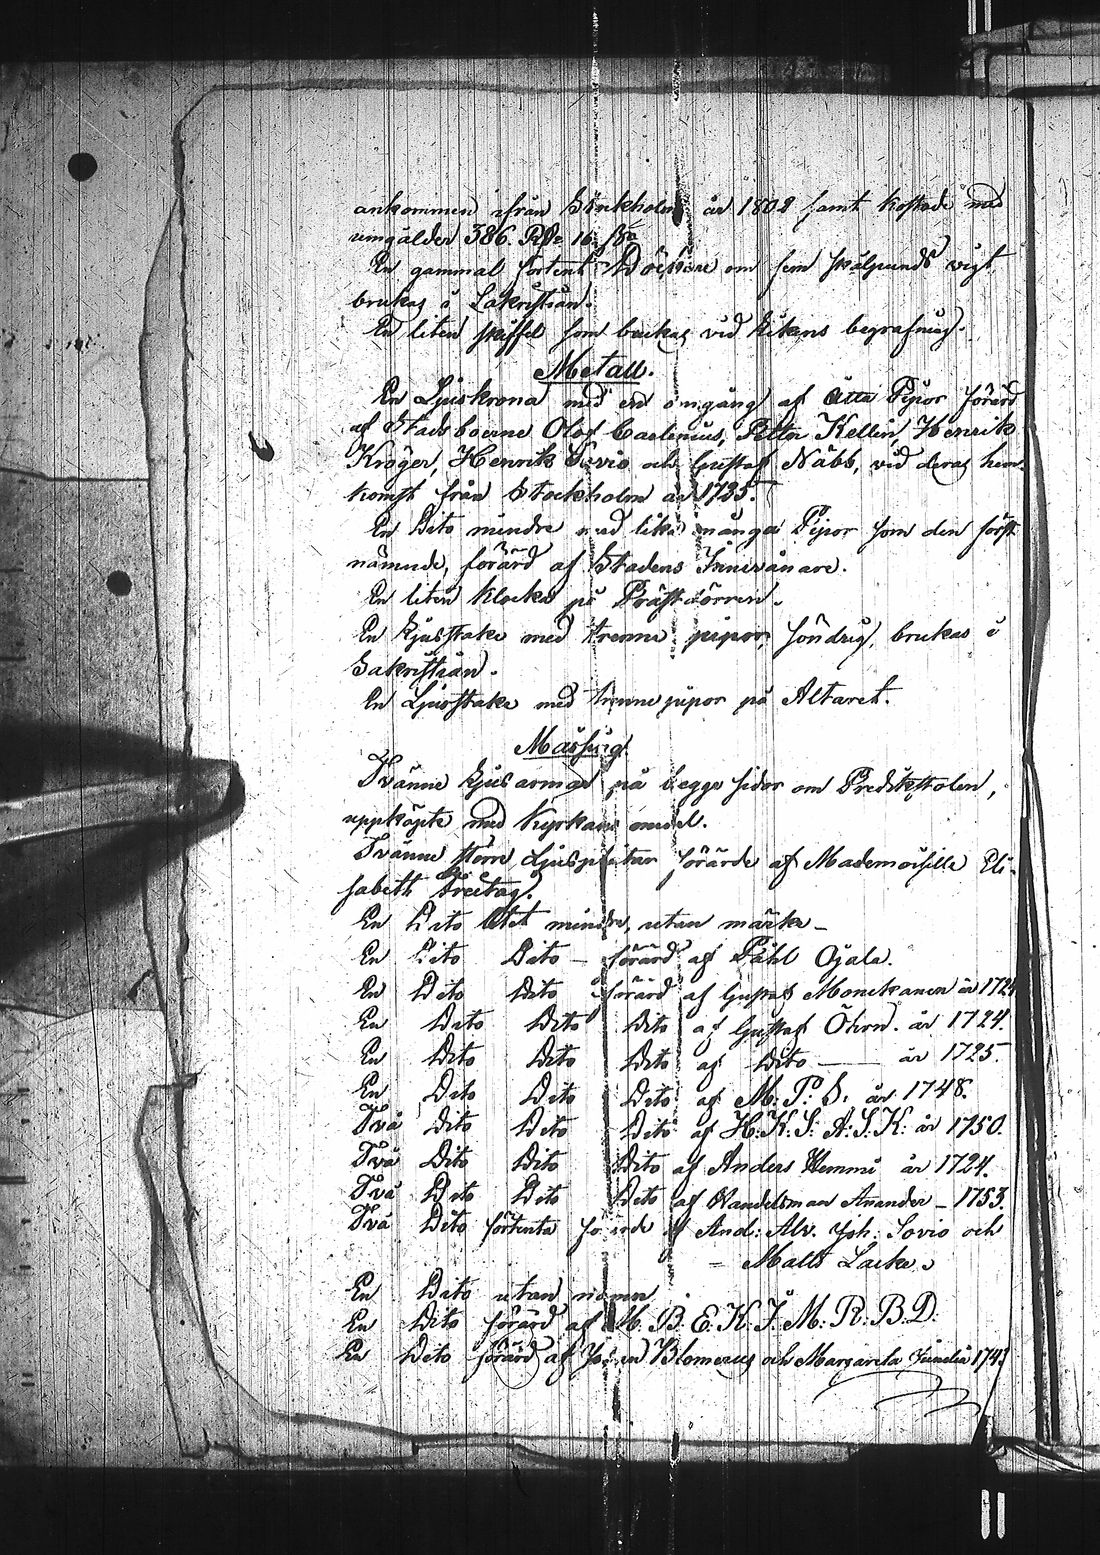 ankommen ifrån Stockholm år 1802 samt kostade med
umgälder 386. Rd: 16 s:
En gammal förtent om fem skålpunds vigt
brukas i Sakristian.
En liten skåffel som brukas vid likens begrafning.
Metall.
En Ljuskrona med en omgång af åtta Pipor förärd
af Stadsboerne Olof Carlenius, Petter Kellin, Henrik
Kröger, Henrik Sovio och Gustaf Näbb, vid deras hem-
komst från Stockholm år 1735.
En Dito mindre med lika många Pipor som den först
nämnde, förärd af Stadens Innevånare.
En liten klocka på Prästdörren.
En Ljusstake med trenne pipor, söndrig, brukas i
Sakristian.
En Ljusstake med trenne pipor på Altaret.
Mässing.
Tvänne Ljusarmar på begge sidor om Predikstolen,
uppköpte med Kyrkans medel.
Tvänne större Ljusplåtar förärde af Mademoiselle Eli-
sabeth Freitag.
En Dito litet mindre, utan märke –
En Dito Dito – förärd af Påhl Ojala.
En Dito Dito förärd af Gustaf Monckanen år 1724
En Dito Dito Dito af Gustaf Öhrn. år 1724.
En Dito Dito Dito af Dito — år 1725.
En Dito Dito Dito af M: P: S. år 1748.
Två Dito Dito Dito af H: K: S: A: S: K: år 1750.
Två Dito Dito Dito af Anders Hemmi år 1724.
Två Dito Dito Dito af Handelsman Anander – 1753.
Två Dito förtenta förärde af And: Alv. Joh: Sovio och
– Matts Lacke.
En Dito utan namn
En Dito förärd af M. B. E. K. I. M: R. B. D.
En Dito förärd af Blomerus och Margareta Junelia 174